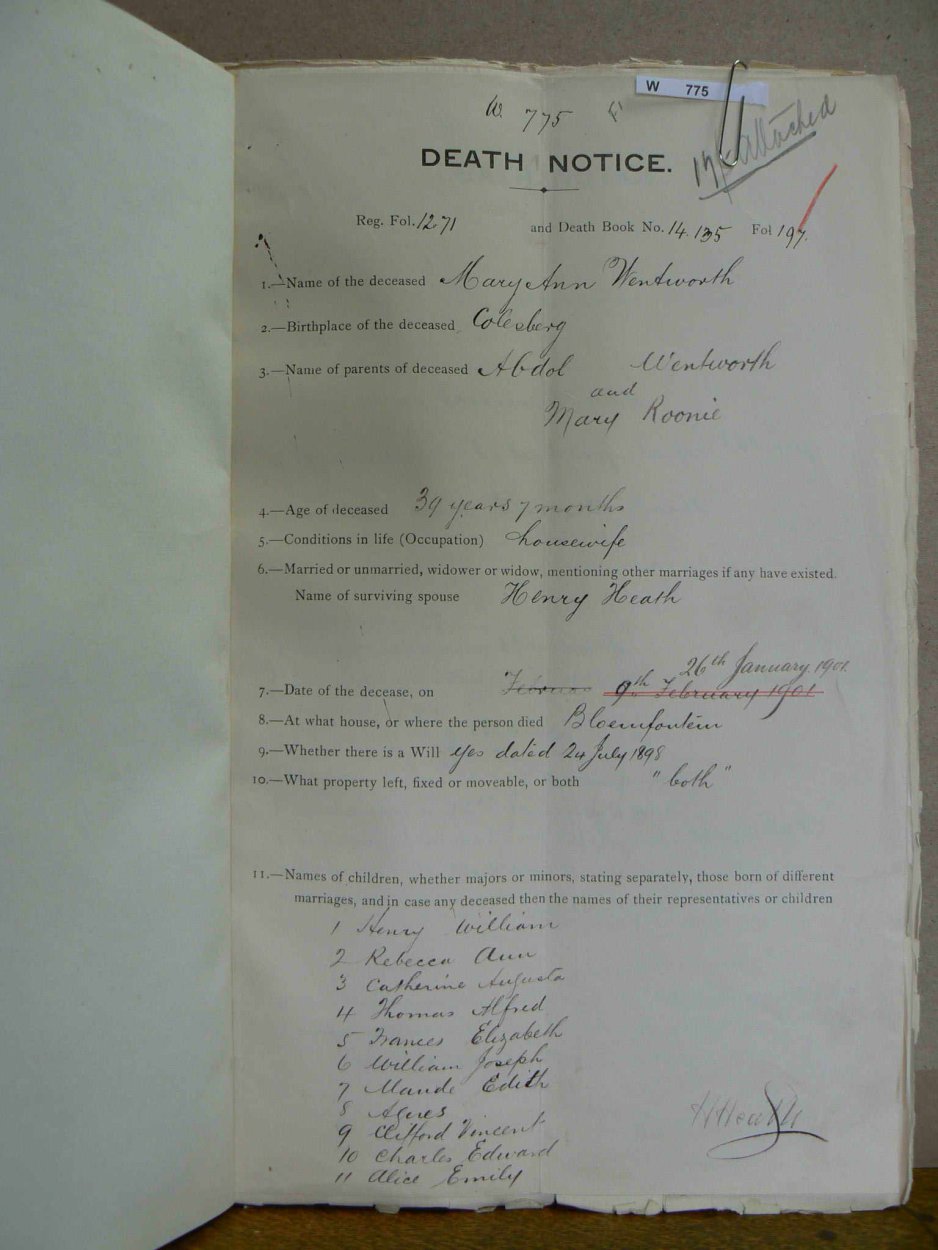 W 775
W. 775
attached
DEATH NOTICE.
Reg. Fol. 1271 and Death Book No. 14.135 Fol 197.
1.—Name of the deceased Mary Ann Wentworth
2.—Birthplace of the deceased Colesberg
3.—Name of parents of deceased Abdol Wentworth
and
Mary Roonie
4.—Age of deceased 39 years 7 months
5.—Conditions in life (Occupation) housewife
6.—Married or unmarried, widower or widow, mentioning other marriages if any have existed.
Name of surviving spouse Henry Heath
26th January 1901
7.—Date of the decease, on 9th February 1901
8.—At what house, or where the person died Bloemfontein
9.—Whether there is a Will yes dated 24 July 1898
10.—What property left, fixed or moveable, or both "both"
11.—Names of children, whether majors or minors, stating separately, those born of different
marriages, and in case any deceased then the names of their representatives or children
1 Henry William
2 Rebecca Ann
3 Catherine Augusta
4 Thomas Alfred
5 Frances Elizabeth
6 William Joseph
7 Maude Edith
8 Agnes
9 Clifford Vincent
10 Charles Edward
11 Alice Emily
HHeath